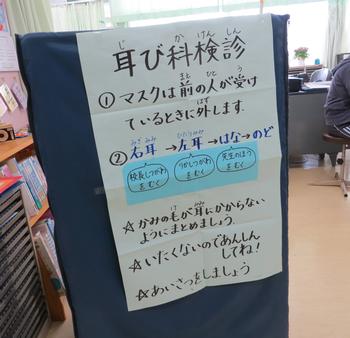 耳び科検診
① マスクは前の人が受け
ているときに外します。
② 右耳→左耳→はな→のど
校長しつがわをむく
ろうかしつがわをむく
先生のほうをむく
☆かみの毛が耳にかからない
ようにまとめましょう。
☆いたくないのであんしん
してね！
☆あいさつをしましょう